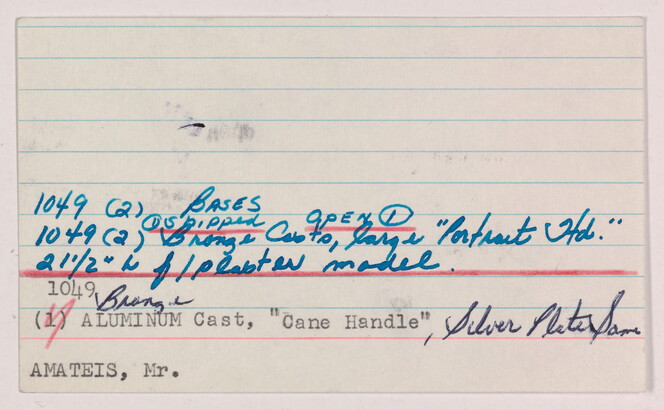 1049 (2) BASES
① shipped OPEN ①
1049 (2) Bronze Casts, large "Portrait Hd."
21½" h f/plaster model.
1049
Bronze
(1) ALUMINUM Cast, "Cane Handle", Silver Plate Same
AMATEIS, Mr.